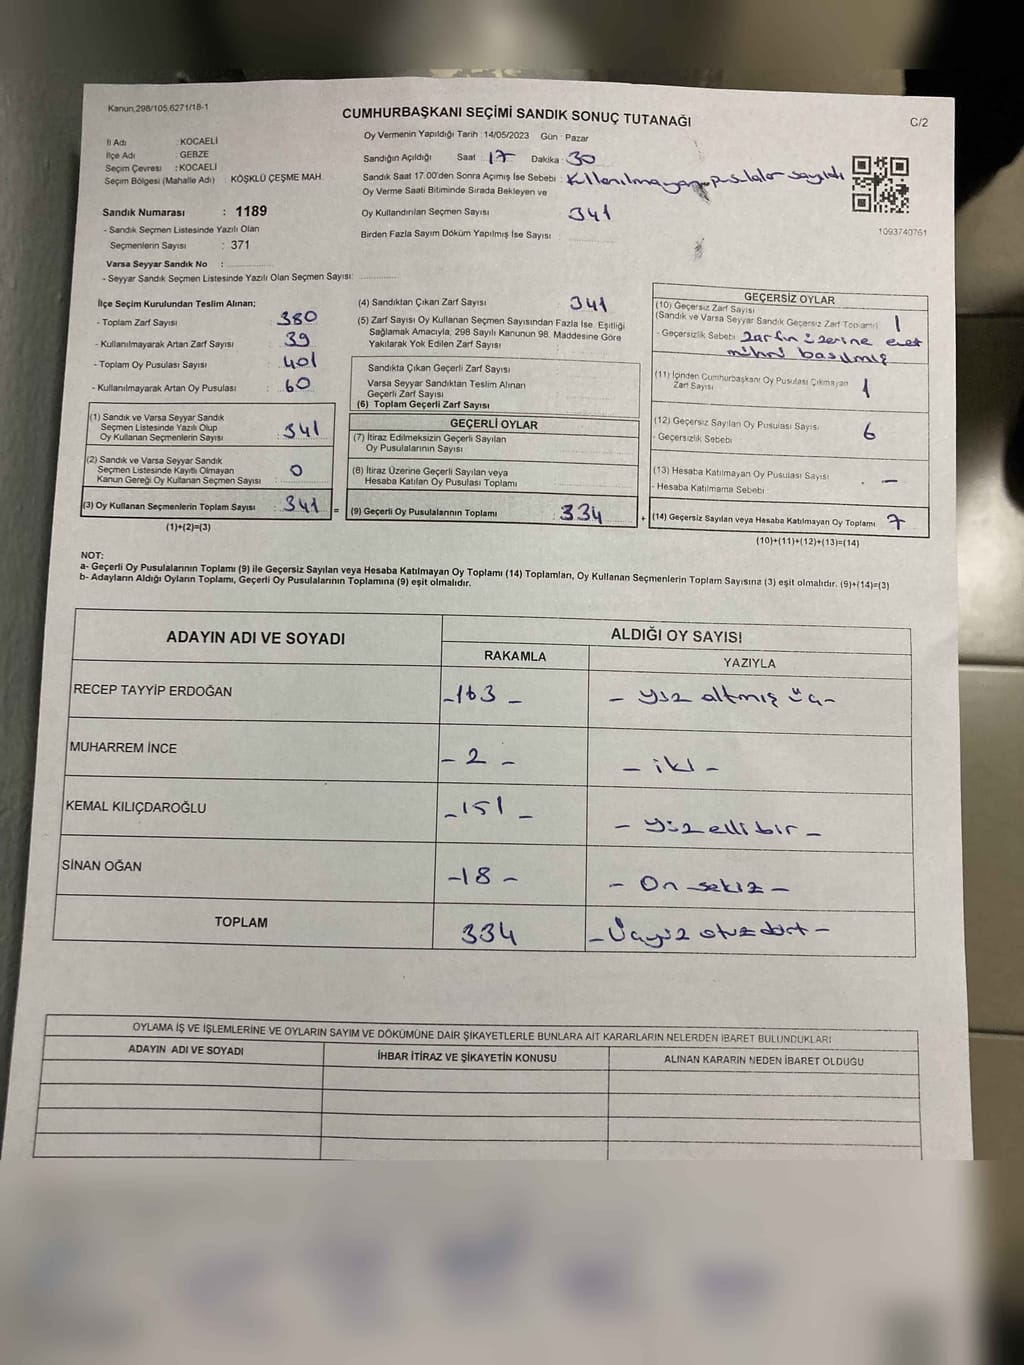 Kanun,298/105,6271/18-1
CUMHURBAŞKANI SEÇİMİ SANDIK SONUÇ TUTANAĞI
C/2
İl Adı : KOCAELİ
İlçe Adı : GEBZE
Seçim Çevresi : KOCAELİ
Seçim Bölgesi (Mahalle Adı) : KÖŞKLÜ ÇEŞME MAH.
Sandık Numarası : 1189
- Sandık Seçmen Listesinde Yazılı Olan
Seçmenlerin Sayısı : 371
Varsa Seyyar Sandık No :
- Seyyar Sandık Seçmen Listesinde Yazılı Olan Seçmen Sayısı:
Oy Vermenin Yapıldığı Tarih : 14/05/2023 Gün : Pazar
Sandığın Açıldığı Saat : 17 Dakika : 30
Sandık Saat 17.00'den Sonra Açılmış İse Sebebi : Kullanılmayan pusulalar sayıldı
Oy Verme Saati Bitiminde Sırada Bekleyen ve
Oy Kullandırılan Seçmen Sayısı 341
Birden Fazla Sayım Döküm Yapılmış İse Sayısı
1093740761
İlçe Seçim Kurulundan Teslim Alınan;
- Toplam Zarf Sayısı : 380
- Kullanılmayarak Artan Zarf Sayısı : 39
- Toplam Oy Pusulası Sayısı : 401
- Kullanılmayarak Artan Oy Pusulası : 60
(1) Sandık ve Varsa Seyyar Sandık
Seçmen Listesinde Yazılı Olup
Oy Kullanan Seçmenlerin Sayısı : 341
(2) Sandık ve Varsa Seyyar Sandık
Seçmen Listesinde Kayıtlı Olmayan
Kanun Gereği Oy Kullanan Seçmen Sayısı : 0
(3) Oy Kullanan Seçmenlerin Toplam Sayısı : 341
(1)+(2)=(3)
(4) Sandıktan Çıkan Zarf Sayısı 341
(5) Zarf Sayısı Oy Kullanan Seçmen Sayısından Fazla İse, Eşitliği
Sağlamak Amacıyla, 298 Sayılı Kanunun 98. Maddesine Göre
Yakılarak Yok Edilen Zarf Sayısı
Sandıkta Çıkan Geçerli Zarf Sayısı
Varsa Seyyar Sandıktan Teslim Alınan
Geçerli Zarf Sayısı
(6) Toplam Geçerli Zarf Sayısı
GEÇERLİ OYLAR
(7) İtiraz Edilmeksizin Geçerli Sayılan
Oy Pusulalarının Sayısı
(8) İtiraz Üzerine Geçerli Sayılan veya
Hesaba Katılan Oy Pusulası Toplamı
= (9) Geçerli Oy Pusulalarının Toplamı 334 +
GEÇERSİZ OYLAR
(10) Geçersiz Zarf Sayısı
(Sandık ve Varsa Seyyar Sandık Geçersiz Zarf Toplamı) 1
- Geçersizlik Sebebi : zarfın üzerine evet
mührü basılmış
(11) İçinden Cumhurbaşkanı Oy Pusulası Çıkmayan
Zarf Sayısı 1
(12) Geçersiz Sayılan Oy Pusulası Sayısı 6
- Geçersizlik Sebebi
(13) Hesaba Katılmayan Oy Pusulası Sayısı : -
- Hesaba Katılmama Sebebi
(14) Geçersiz Sayılan veya Hesaba Katılmayan Oy Toplamı 7
(10)+(11)+(12)+(13)=(14)
NOT:
a- Geçerli Oy Pusulalarının Toplamı (9) ile Geçersiz Sayılan veya Hesaba Katılmayan Oy Toplamı (14) Toplamları, Oy Kullanan Seçmenlerin Toplam Sayısına (3) eşit olmalıdır. (9)+(14)=(3)
b- Adayların Aldığı Oyların Toplamı, Geçerli Oy Pusulalarının Toplamına (9) eşit olmalıdır.
ADAYIN ADI VE SOYADI
ALDIĞI OY SAYISI
RAKAMLA YAZIYLA
RECEP TAYYİP ERDOĞAN -163- - yüz altmış üç -
MUHARREM İNCE - 2 - - iki -
KEMAL KILIÇDAROĞLU - 151 - - yüz elli bir -
SİNAN OĞAN -18 - - On sekiz -
TOPLAM 334 - Üçyüz otuz dört -
OYLAMA İŞ VE İŞLEMLERİNE VE OYLARIN SAYIM VE DÖKÜMÜNE DAİR ŞİKAYETLERLE BUNLARA AİT KARARLARIN NELERDEN İBARET BULUNDUKLARI
ADAYIN ADI VE SOYADI İHBAR İTİRAZ VE ŞİKAYETİN KONUSU ALINAN KARARIN NEDEN İBARET OLDUĞU